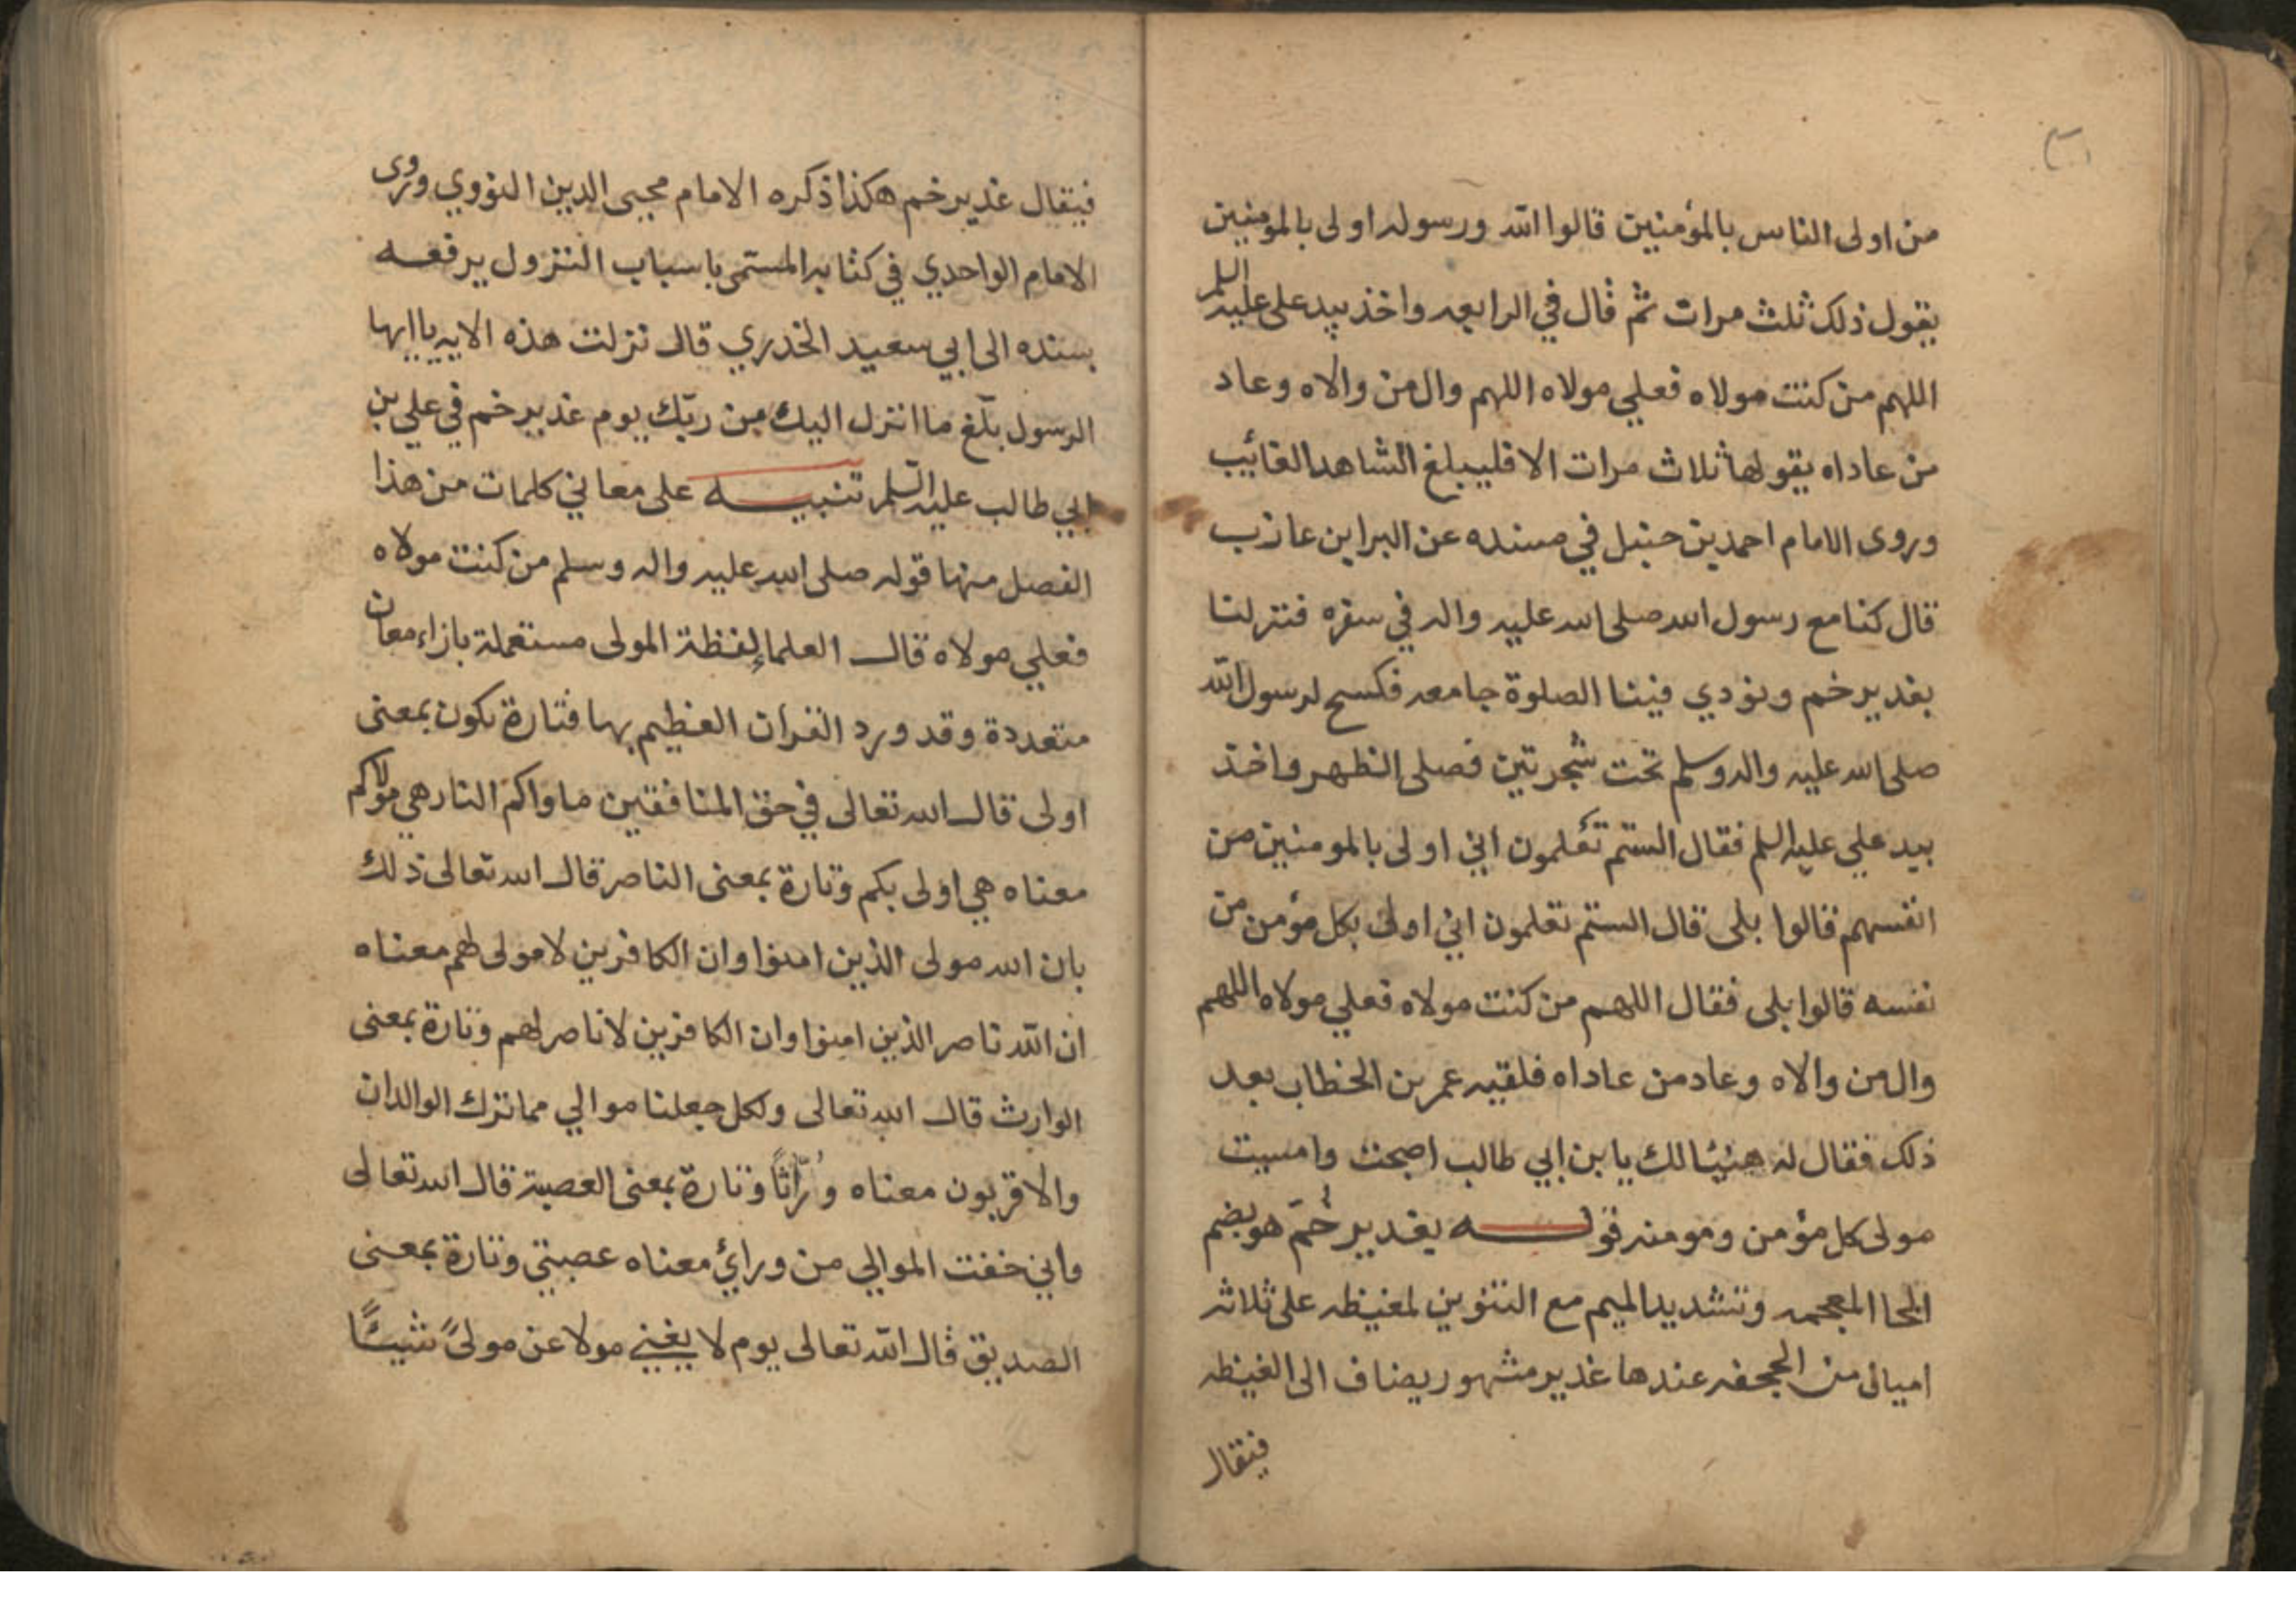 من اولى الناس بالمؤمنين قالوا الله ورسوله اولى بالمومنين
يقول ذلك ثلث مرات ثم قال في الرابعه واخذ بيد على عليه السلم
اللهم من كنت مولاه فعلي مولاه اللهم وال من والاه وعاد
من عاداه يقولها ثلاث مرات الا فليبلغ الشاهد الغائب
وروى الامام احمد بن حنبل في مسنده عن البرا بن عازب
قال كنا مع رسول الله صلى الله عليه واله في سفره فنزلنا
بغدير خم ونودي فينا الصلوة جامعه فكسح لرسول الله
صلى الله عليه واله وسلم تحت شجرتين فصلى الظهر واخذ
بيد علي عليه السلم فقال الستم تعلمون اني اولى بالمومنين من
انفسهم قالوا بلى قال الستم تعلمون اني اولى بكل مؤمن من
نفسه قالوا بلى فقال اللهم من كنت مولاه فعلي مولاه اللهم
وال من والاه وعاد من عاداه فلقيه عمر بن الخطاب بعد
ذلك فقال له هنيئا لك يا بن ابي طالب اصبحت وامسيت
مولى كل مؤمن ومومنه قوله بغدير خُمّ هو بضم
الخا المعجمه وتشديد الميم مع التنوين لغيظه على ثلاثه
اميال من الجحفه عندها غدير مشهور يضاف الى الغيظه
فيقال
٣١
فيقال غدير خم هكذا ذكره الامام محيى الدين النووي وروى
الامام الواحدي في كتابه المسمى باسباب النزول يرفعه
بسنده الى ابي سعيد الخدري قال نزلت هذه الايه ياايها
الرسول بلّغ ما انزل اليك من ربّك يوم غدير خم في علي بن
ابي طالب عليه السلم تنبيه على معاني كلمات من هذا
الفصل منها قوله صلى الله عليه واله وسلم من كنت مولاه
فعلي مولاه قال العلماء لفظة المولى مستعملة بازاء معان
متعددة وقد ورد القران العظيم بها فتارة تكون بمعنى
اولى قال الله تعالى في حق المنافقين ماواكم النار هي مولاكم
معناه هي اولى بكم وتارة بمعنى الناصر قال الله تعالى ذلك
بان الله مولى الذين امنوا وان الكافرين لا مولى لهم معناه
ان الله ناصر الذين امنوا وان الكافرين لا ناصر لهم وتارة بمعنى
الوارث قال الله تعالى ولكل جعلنا موالي مما ترك الوالدان
والاقربون معناه وُرّاثًا وتارة بمعنى العصبة قال الله تعالى
واني خفت الموالي من ورائي معناه عصبتي وتارة بمعنى
الصديق قال الله تعالى يوم لا يغني مولا عن مولىً شيئًا